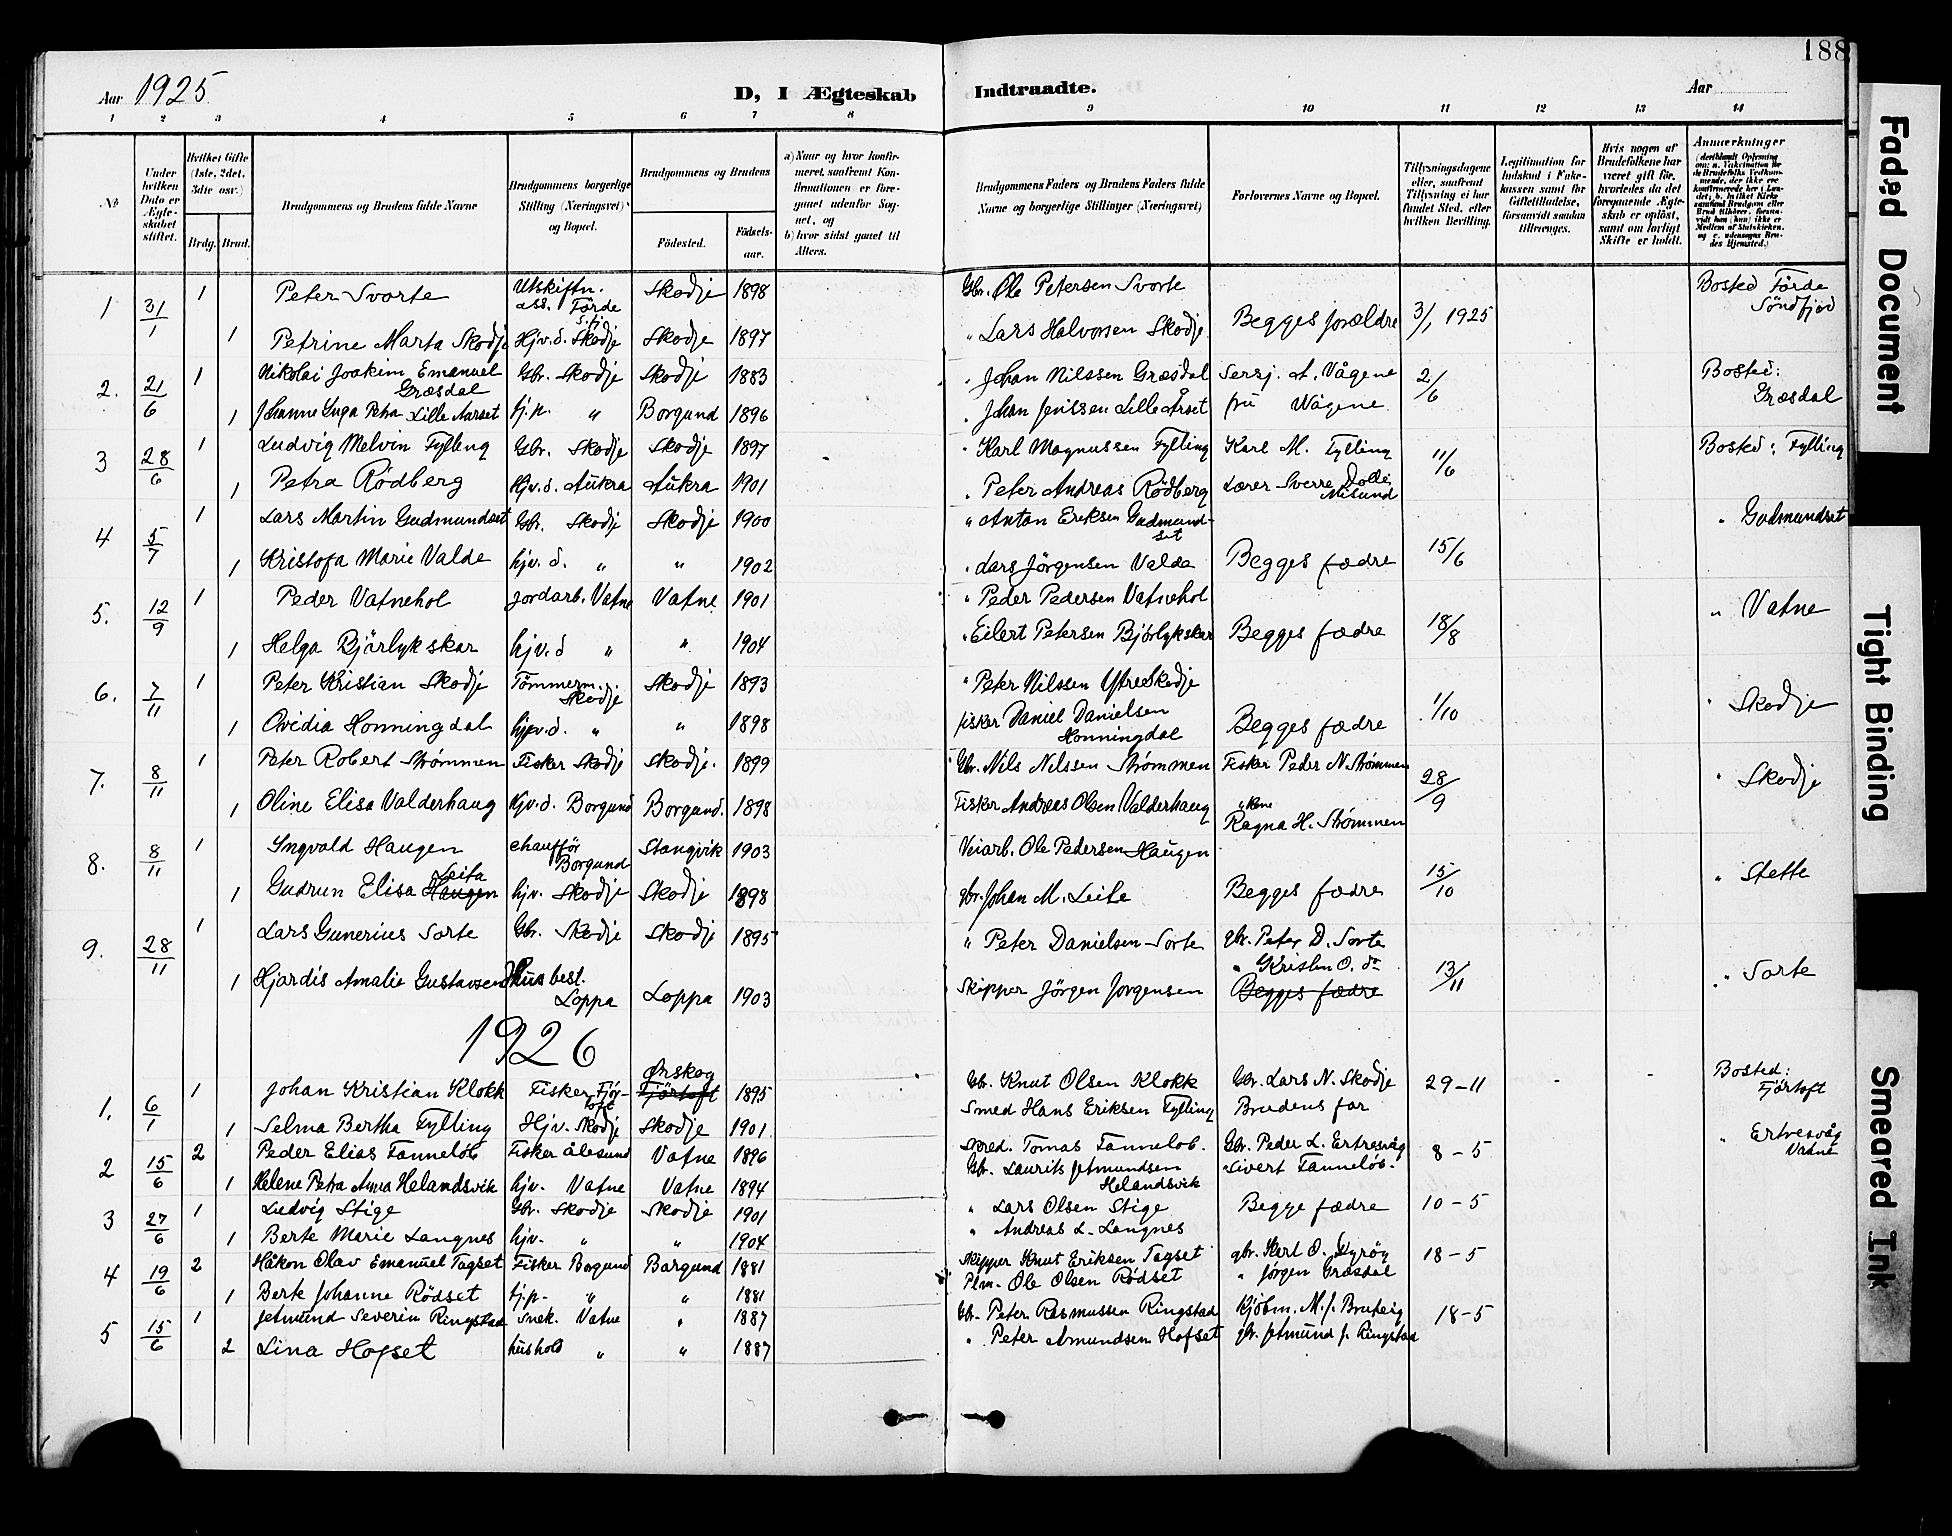 188
Aar 1925
D, I Ægteskab Indtraadte.
Aar
1 2 3 4 5 6 7 8 9 10 11 12 13 14
No
Under hvilken Dato er Ægteskabet stiftet.
Hvilket Gifte (1ste, 2det, 3die osv.)
Brdg. Brud.
Brudgommens og Brudens fulde Navne
Brudgommens borgerlige Stilling (Næringsvei) og Bopæl.
Brudgommens og Brudens
Fødested. Fødselsaar.
a) Naar og hvor konfirmeret, saafremt Konfirmationen er foregaaet udenfor Sognet, og
b) hvor sidst gaaet til Alters.
Brudgommens Faders og Brudens Faders fulde Navne og borgerlige Stillinger (Næringsvei)
Forlovernes Navne og Bopæl.
Tillysningsdagene eller, saafremt Tillysning ei har fundet Sted, efter hvilken Bevilling.
Legitimation for Indskud i Enkekassen samt for Giftetilladelse, forsaavidt saadan tiltrænges.
Hvis nogen af Brudefolkene har været gift før, hvorledes da det foregaaende Ægteskab er opløst, samt om lovligt Skifte er holdt.
Anmærkninger
1 31/1 1 Peter Svorte Utskiftn. ass. Förde S.fj. Skodje 1898 Gbr. Ole Petersen Svorte Bosted Förde Söndfjord
1 Petrine Marta Skodje Hjv.d. Skodje Skodje 1897 " Lars Halvorsen Skodje Begges forældre 3/1 1925
2. 21/6 1 Nikolai Joakim Emanuel Græsdal Gbr. Skodje Skodje 1883 " Johan Nilssen Græsdal Sersj. A. Vågene 2/6 Bosted: Græsdal
1 Johanne Inga Petra Lille Aarset tj.p. " Borgund 1896 " Johan Jenssen Lille Årset fru Vågene
3 28/6 1 Ludvig Melvin Fylling Gbr. Skodje Skodje 1897 " Karl Magnussen Fylling Karl M. Fylling 11/6 Bosted: Fylling
1 Petra Rödberg Hjv.d. Aukra Aukra 1901 " Peter Andreas Rödberg Lærer Sverre Dolle, Misund
4 5/7 1 Lars Martin Gudmundset Gbr. Skodje Skodje 1900 " Anton Eriksen Gudmundset " Gudmundset
1 Kristofa Marie Valde hjv.d. " " 1902 " Lars Jörgensen Valde Begges fædre 15/6
5. 12/9 1 Peder Vatnehol Jordarb. Vatne Vatne 1901 " Peder Pedersen Vatnehol " Vatne
1 Helga Bjørlykskar hjv.d " " 1904 " Eilert Petersen Bjørlykskar Begges fædre 18/8
6. 7/11 1 Peter Kristian Skodje Tömmerm. Skodje Skodje 1893 " Peter Nilssen Ytre Skodje " Skodje
1 Ovidia Honningdal hjv.d. " " 1898 fisker Daniel Danielsen Honningdal Begges fædre 1/10
7. 8/11 1 Peter Robert Strømmen Fisker Skodje Skodje. 1899 Gbr. Nils Nilssen Strømmen Fisker Peder N. Strømmen 28/9 " Skodje
1 Oline Elisa Valderhaug Hjv.d. Borgund Borgund. 1898 Fisker Andreas Olsen Valderhaug " kone Ragna H. Strømmen
8. 8/11 1 Ingvald Haugen chauffør Borgund Stangvik 1903 Veiarb. Ole Pedersen Haugen " Stette
1 Gudrun Elisa Haugen Leite hjv. Skodje Skodje 1898 gbr. Johan M. Leite Begges fædre 15/10
9. 28/11 1 Lars Gunerius Sorte Gbr. Skodje Skodje 1895 " Peter Danielsen Sorte gbr. Peter D. Sorte " Sorte
" Kristen O. do
1 Hjørdis Amalie Gustavsen Husbest. Loppa Loppa 1903 Skipper Jörgen Jørgensen Begges fædre 13/11
1926
1. 6/1 1 Johan Kristian Klokk Fisker Fjørtoft Ørskog Fjörtoft 1895 Gbr. Knut Olsen Klokk Gbr. Lars N. Skodje 29-11 Bosted: Fjørtoft
1 Selma Bertha Fylling Hjv. Skodje Skodje 1901 Smed Hans Eriksen Fylling Brudens far
2 15/6 2 Peder Elias Tanneløb Fisker Ålesund Vatne 1896 Tomas Tanneløb. Gbr. Peder L. Ertresvåg 8-5 " Ertresvåg Vatne
1 Helene Petra Anna Helandsvik hjv. Vatne Vatne 1894 Gbr. Laurits Jetmundsen Helandsvik " Sivert Tanneløb.
3 27/6 1 Ludvig Stige Gbr. Skodje Skodje 1901 " Lars Olsen Stige Begge fædre 10-5
1 Berte Marie Langnes hjv. " " 1904 " Andreas L. Langnes
4 19/6 2 Håkon Olav Emanuel Tagset Fisker Borgund Borgund 1881 Skipper Knut Eriksen Tagset gbr. Karl O. Dyrøy 18-5
1 Berte Johanne Rödset tj.p. " " 1881 Plm. Ole Olsen Rödset " Jørgen Græsdal
5 15/6 1 Jetmund Severin Ringstad Snek. Vatne " 1887 Gbr. Peter Rasmussen Ringstad Kjøbm. M.J. 18-5
2 Lina Hofset hushold " " 1887 " Peter Amundsen Hofset gbr. Jetmund J. Ringstad
Faded Document
Tight Binding
Smeared Ink